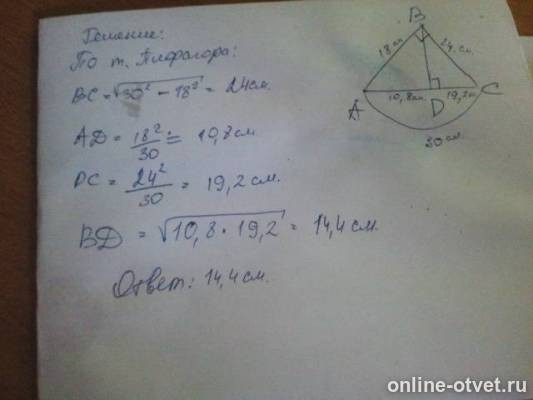 Решение:
По т. Пифагора:
BC = √30² − 18² = 24см.
AD = 18²/30 = 10,8 см
DC = 24²/30 = 19,2 см.
BD = √10,8 · 19,2 = 14,4 см.
Ответ: 14,4 см.
B
18 см
24 см.
A
10,8 см.
D
19,2 см.
C
30 см
online-otvet.ru